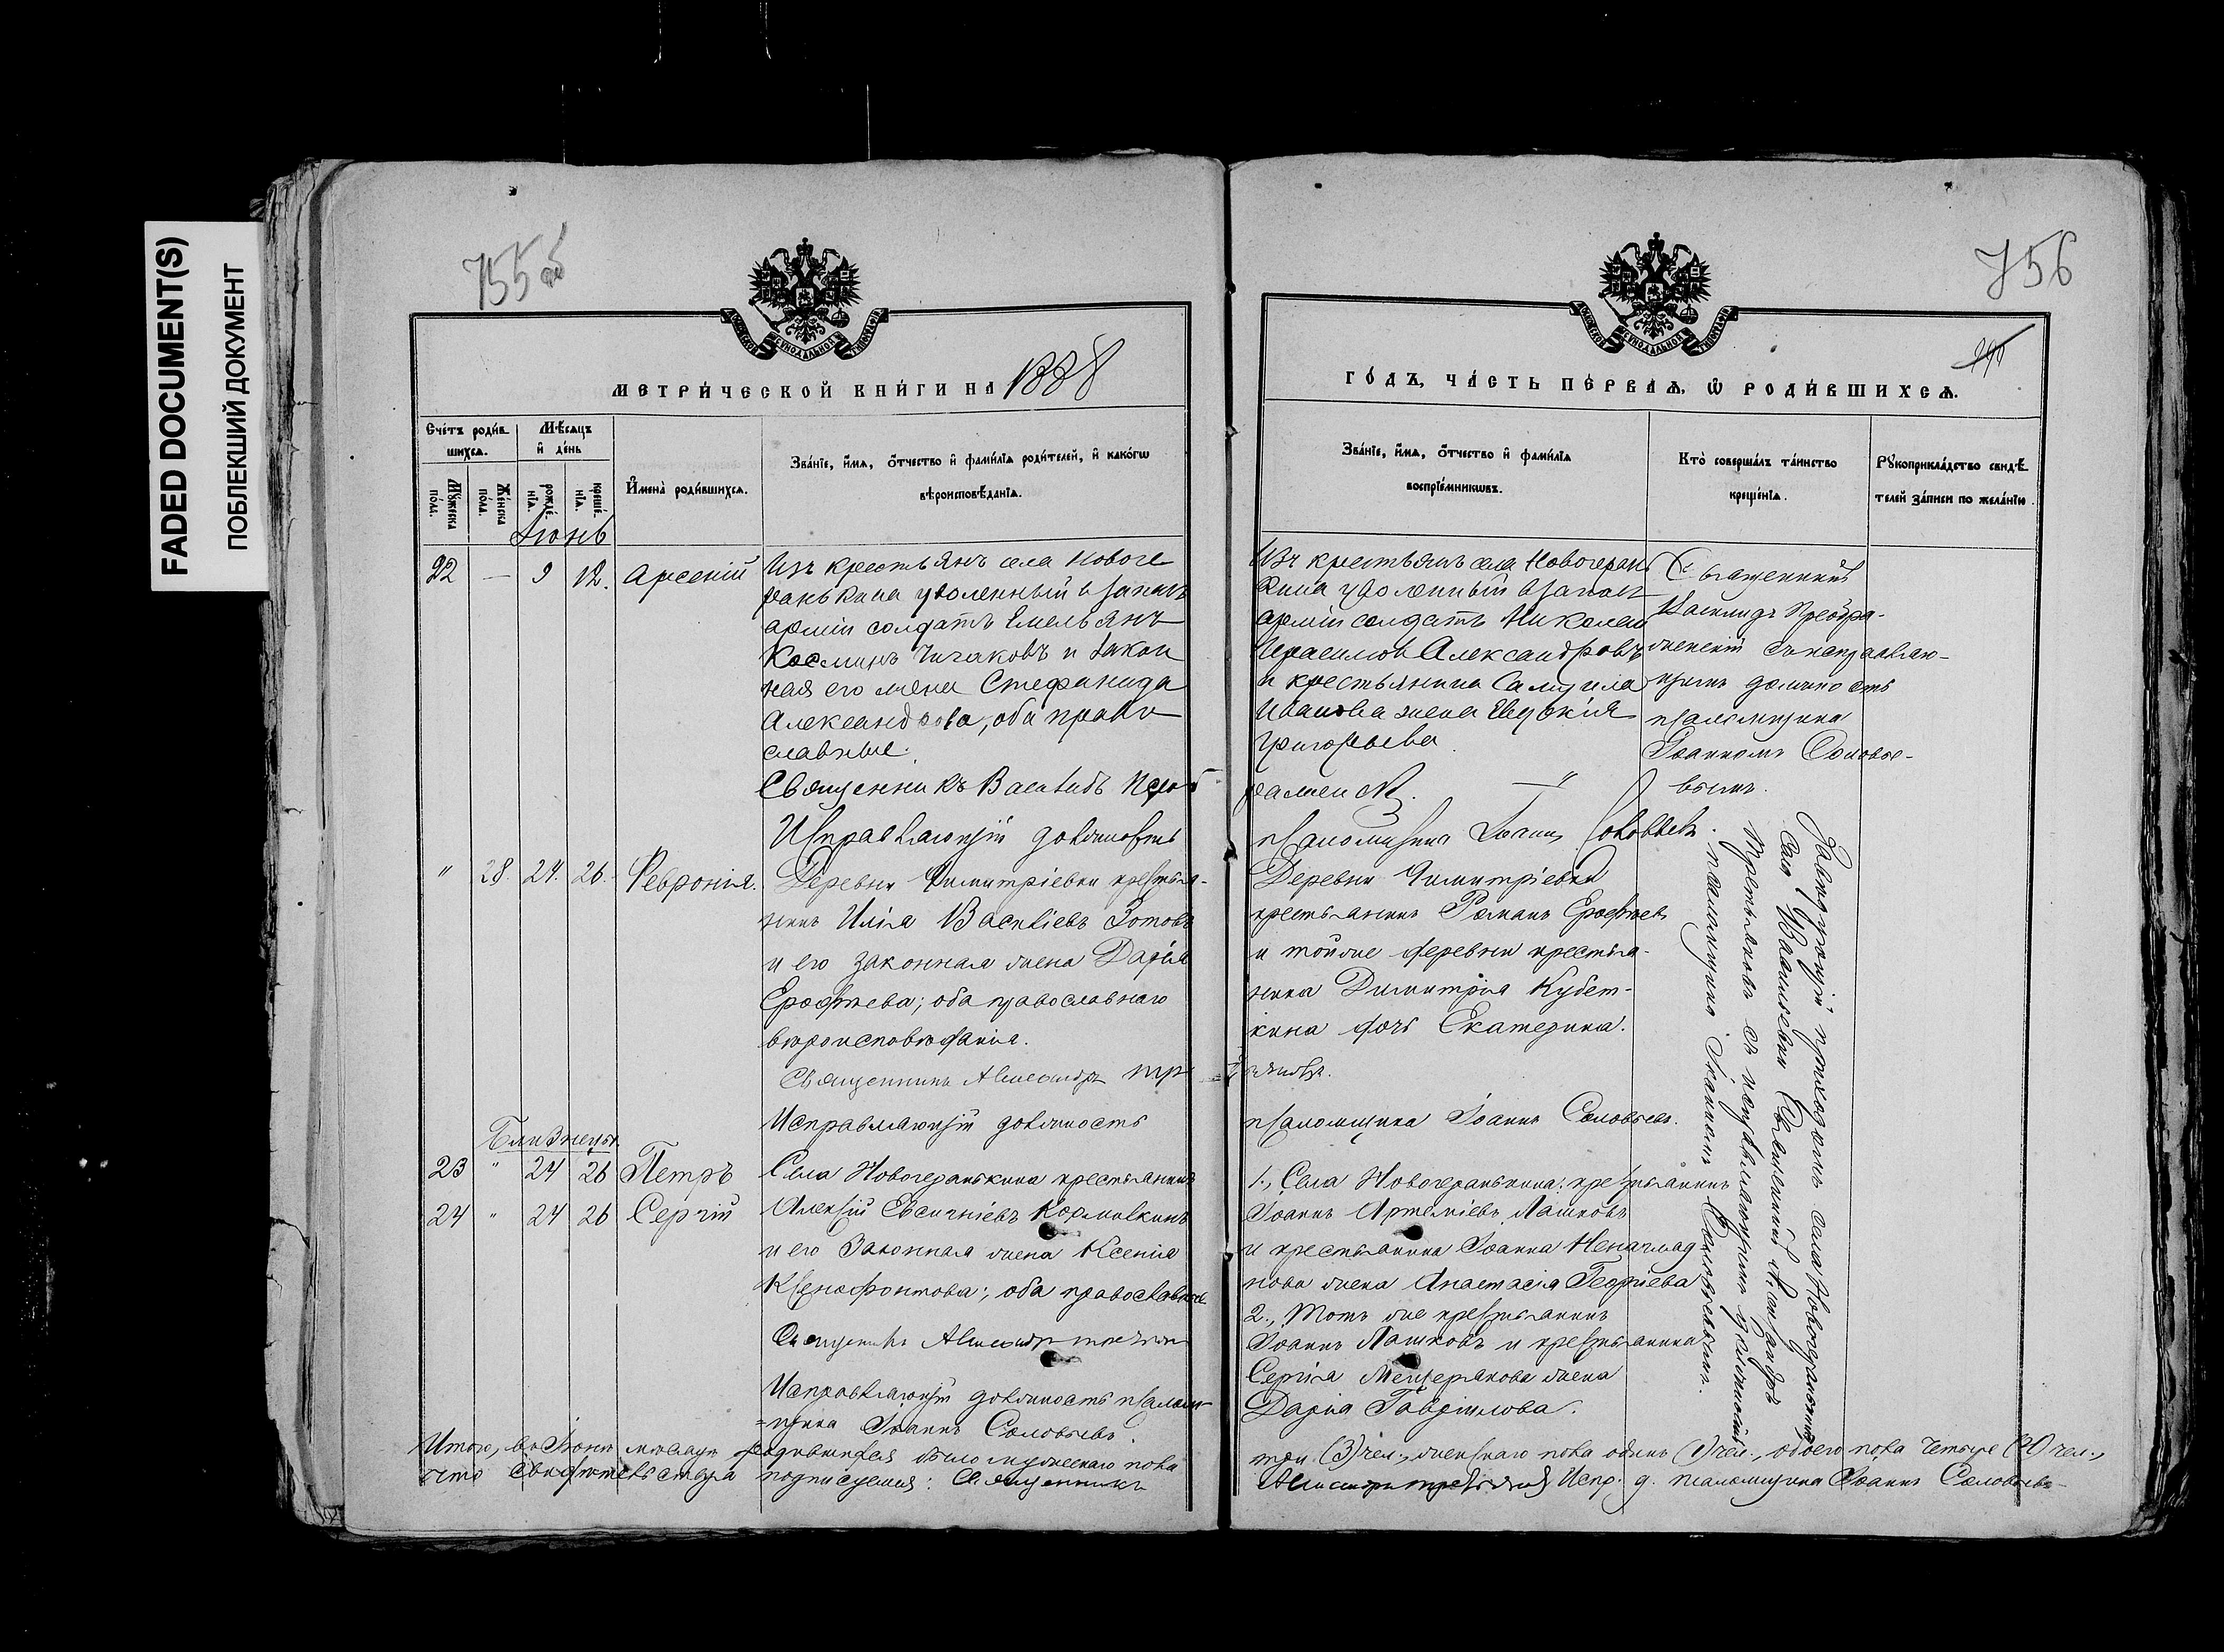 FADED DOCUMENT(S)
ПОБЛЕКШИЙ ДОКУМЕНТ
755 об
МЕТРИ́ЧЕСКОЙ КНИ́ГИ НА 1888
Сче́тъ роди́в
шихсѧ.
Мѣ́сѧцъ
и҆ де́нь
Мꙋ́жеска по́ла.
Же́нска по́ла.
рожде́нїѧ.
креще́нїѧ.
И҆мена̀ роди́вшихсѧ.
Зва́нїе, и҆́мѧ, ѻ҆́тчество и҆ фами́лїѧ роди́телей, и҆ како́гѡ
вѣроисповѣ́данїѧ.
Іюнь
22 — 9 12. Арсеній
Изъ крестьянъ села Новоге
ранькина уволенный в запасъ
арміи солдатъ Емельянъ
Косминъ Чичаковъ и закон
ная его жена Стефанида
Александрова, оба право
славные.
Священникъ
Исправляющій должность
" 28. 24. 26. Февронія.
Деревни Димитріевки крестья-
нинъ Илія Василіевъ Зотовъ
и его законная жена Дарія
Ерофѣева; оба православнаго
вѣроисповѣданія.
Священникъ Александръ
Исправляющій должность
Близнецы
23 " 24 26 Петръ
24 " 24 26 Сергій
Села Новогеранькина крестьянинъ
Алексій Евсигніевъ Кормилкинъ
и его законная жена Ксенія
Ксенофонтова; оба православные
Священникъ Александръ
Исправляющій должность псалом-
=щика Іоаннъ Соловьевъ.
Итого, въ Іюнѣ мѣсяцѣ родившихся было мужескаго пола
что свидѣтельствуя подписуемся: Священникъ
756
ГО́ДЪ, ЧА́СТЬ ПЕ́РВАѦ, Ѡ҆ РОДИ́ВШИХСѦ.
Зва́нїе, и҆́мѧ, ѻ҆́тчество и҆ фами́лїѧ
воспрїе́мникѡвъ.
Кто̀ соверша́лъ та́инство
креще́нїѧ.
Рꙋкоприкла́дство свидѣ́
телей за́писи по жела́нїю.
Изъ крестьянъ села Новогеран
кина уволенный въ запасъ
арміи солдатъ Николай
Герасимовъ Александровъ
и крестьянина Самуила
Иванова жена Евдокія
Григорьева.
Священникъ
Василидъ Преобра-
женскій съ исправляю-
щимъ должность
псаломщика
Іоанномъ Соловье-
вымъ.
псаломщика Іоаннъ Соловьевъ.
Деревни Димитріевки
крестьянинъ Романъ Ерофѣевъ
и тойже деревни крестья-
нина Димитрія Кубет-
кина дочь Екатерина.
псаломщика Іоаннъ Соловьевъ.
1., Села Новогеранькина крестьянинъ
Іоаннъ Артеміевъ Лашковъ
и крестьянина Іоанна
нова жена Анастасія Георгіева
2., Тотъ же крестьянинъ
Іоаннъ Лашковъ и крестьянина
Сергія Мещерякова жена
Дарія Гавріилова.
Завѣдующій приходомъ села Новогеранькина
села Васильевки Священникъ Александръ
Третьяковъ съ исправляющимъ должность
псаломщика Іоанномъ Соловьевымъ.
три (3) чел., женскаго пола одинъ (1) чел., обоего пола четыре (4) чел.,
Александръ Третьяковъ Испр. д. псаломщика Іоаннъ Соловьевъ